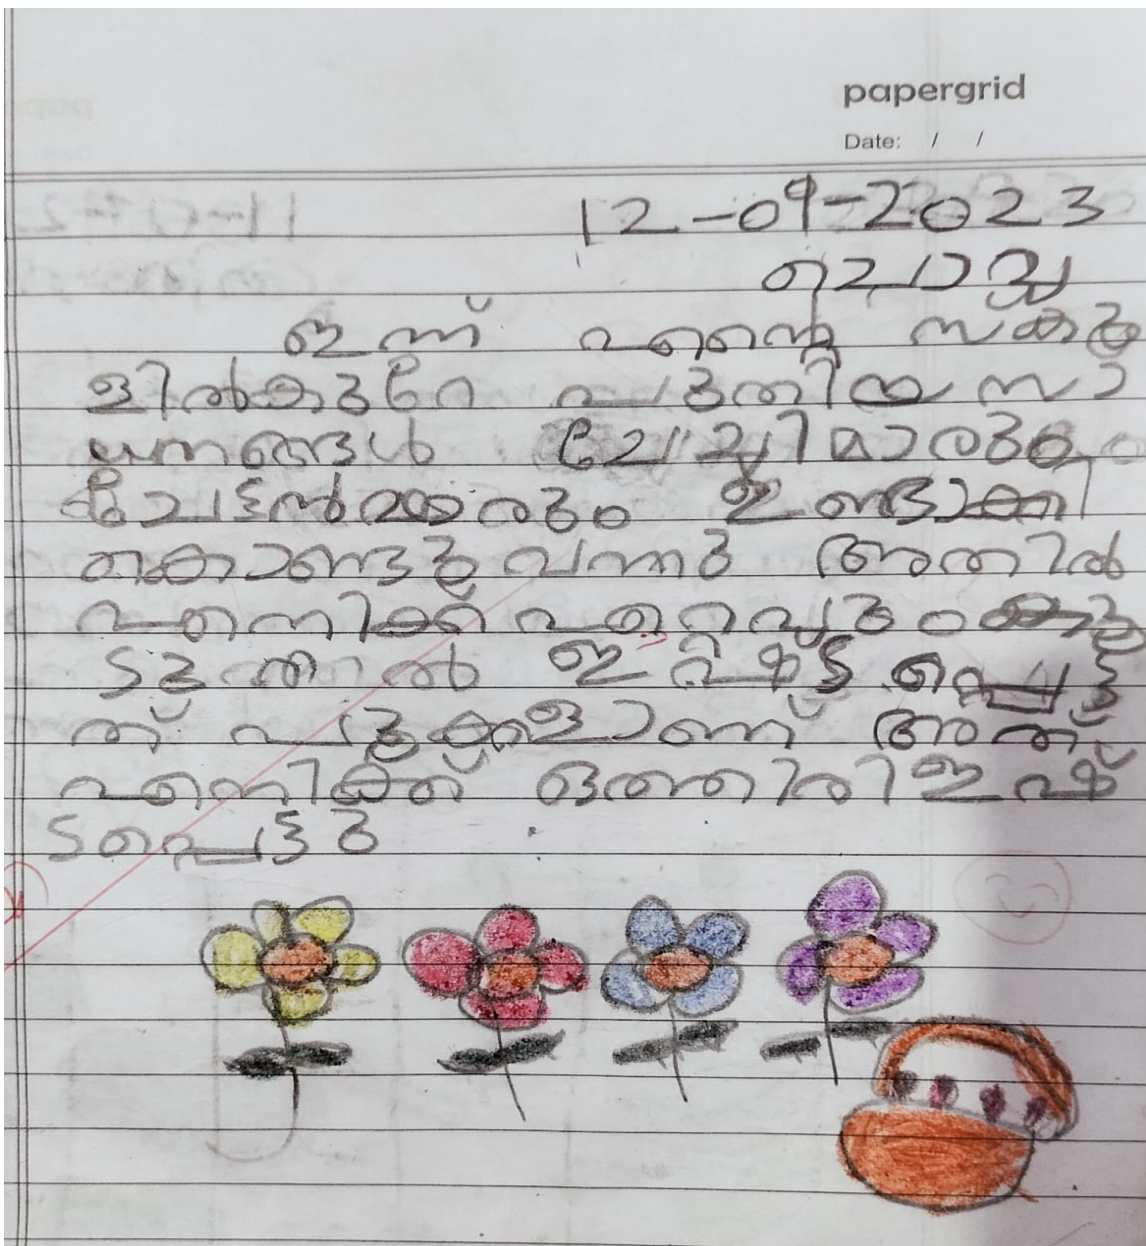 papergrid
Date: / /
12-09-2023
ചൊവ്വ
ഇന്ന് എന്റെ സ്കൂ
ളിൽ കുറേ പുതിയ സാ
ധനങ്ങൾ ചേച്ചിമാരും
ചേട്ടൻമാരും ഇണ്ടാക്കി
കൊണ്ടു വന്നു അതിൽ
എനിക്ക് എറ്റവും കൂ
ടുതിൽ ഇഷ്ട പ്പെട്ട
ത് പൂക്കളാണ് അത്
എനിക്ക് ഒത്തിരി ഇഷ്
ടപ്പെട്ടു